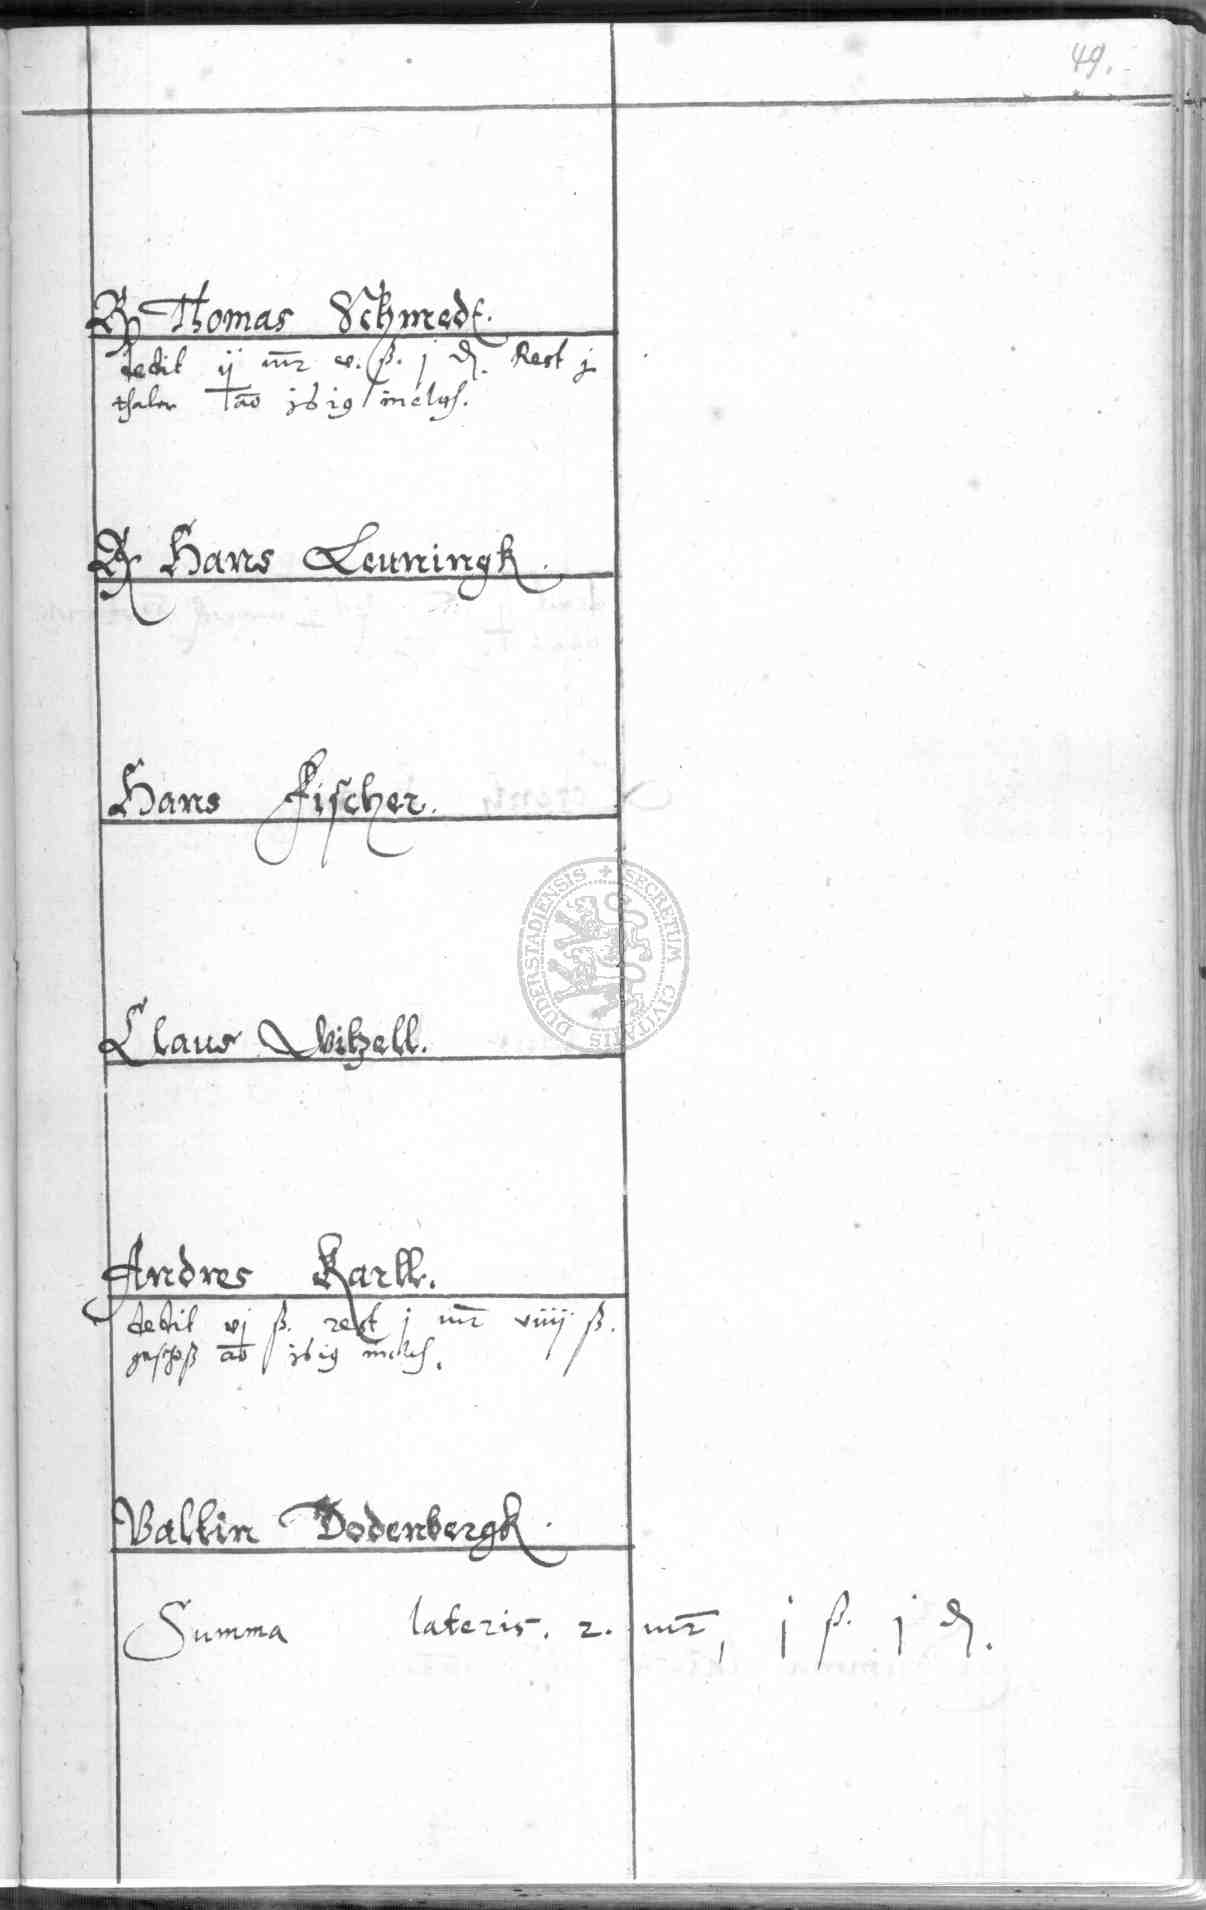 49.
Thomas Schmedt.
dedit ij mr v. ß. j d. Rest j
thaler ao 1619 inclus.
Hans Leuningk.
Hans Fischer.
SECRETUM CIVITATIS DUDERSTADIENSIS
Claus Witzell.
Andres Karll.
dedit vj ß. rest j mr viiij ß.
geschoß ao 1619 inclus.
Valtin Dodenbergk.
Summa lateris. 2. mr, j ß. j d.